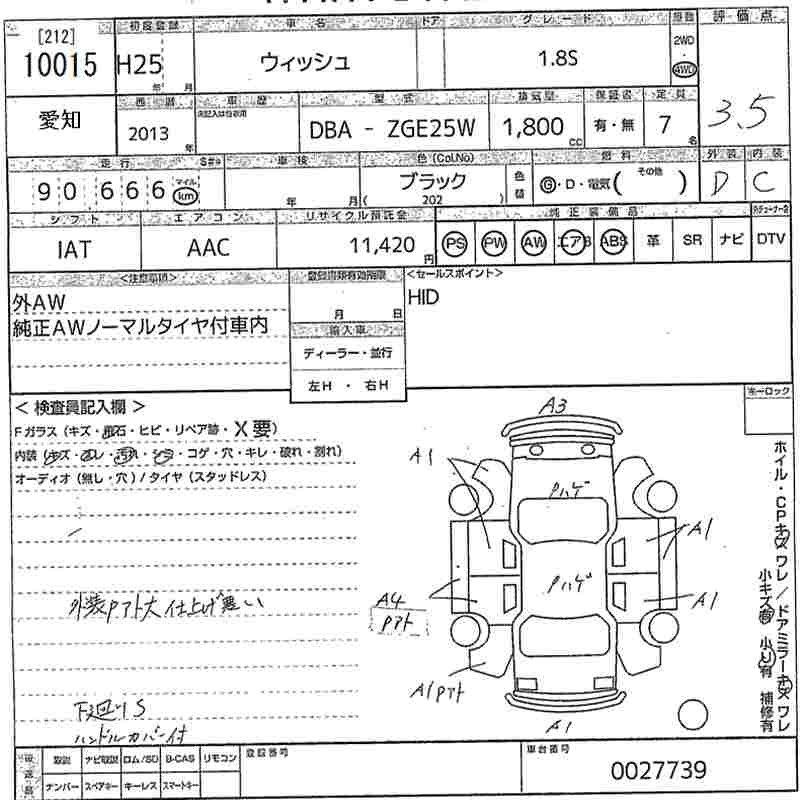 [212] 初度登録 車名 ドア グレード 駆動 評価点
10015 H25 年 月 ウィッシュ 1.8S 2WD 4WD 3.5
愛知 西暦 車歴 型式 排気量 保証書 定員
2013 年 DBA - ZGE25W 1,800 cc 有・無 7 名
走行 S#* 車検 色 (Col.No) 色替 燃料 外装 内装
90,666 マイル km 年 月 ブラック ( 202 ) G・D・電気( その他 ) D C
シフト エアコン リサイクル預託金 純正装備品
IAT AAC 11,420 円 PS PW AW エアB ABS 革 SR ナビ DTV
<注意事項> 登録書類有効期限 <セールスポイント>
外AW 月 日 HID
純正AWノーマルタイヤ付車内 輸入車
ディーラー・並行
左H ・ 右H
< 検査員記入欄 > ホーローック
Fガラス (キズ・飛石・ヒビ・リペア跡・X要)
内装 (キズ・スレ・汚れ・シミ・コゲ・穴・キレ・破れ・割れ)
オーディオ (無し・穴) / タイヤ (スタッドレス)
A3
A1
Pハゲ
A1
Pハゲ
外装Pアト大 仕上げ悪い
A4 A1
Pアト
A1Pアト
下廻りS
ハンドルカバー付
A1
ホイル・CPキズワレ/ドアミラーキズワレ
小キズ有 小凹有 補修有
後送品 取説 ナビ取説 ロム/SD B-CAS リモコン 登録番号 車台番号
ナンバー スペアキー キーレス スマートキー 0027739